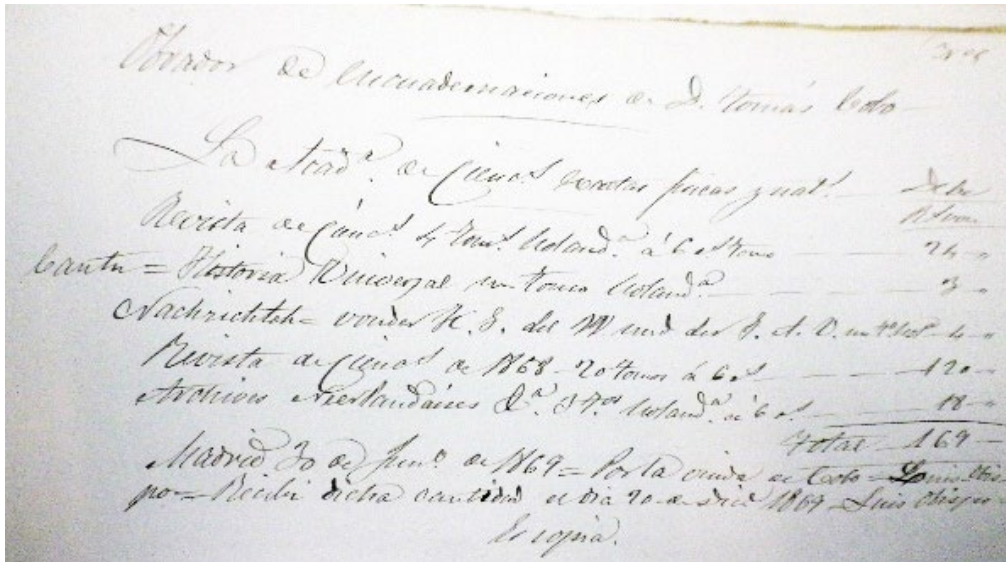 Obrador de Encuadernaciones de D. Tomás Cobo
La Acadª. de Cienˢ exactas fisicas y natˢ. Debe
Revista de Cienˢ 4 tomˢ holandª. á 6 rˢ tomo 24 "
Cantu = Historia Universal un tomo holandª. 3 "
Nachrichteh = von der K. G. der W und der G. A. U. un 4 "
Revista de Cienˢ de 1868 - 20 tomos á 6 rˢ 120 "
Archives Neerlandaises Dª. 3 Tºˢ holandª á 6 rˢ. 18 "
Total 169 "
Madrid 30 de Junº. de 1869 = Por la viuda de Cobo = Luis Obis
po = Recibi dicha cantidad el dia 20 de Dic 1869 Luis Obispo
Es copia.